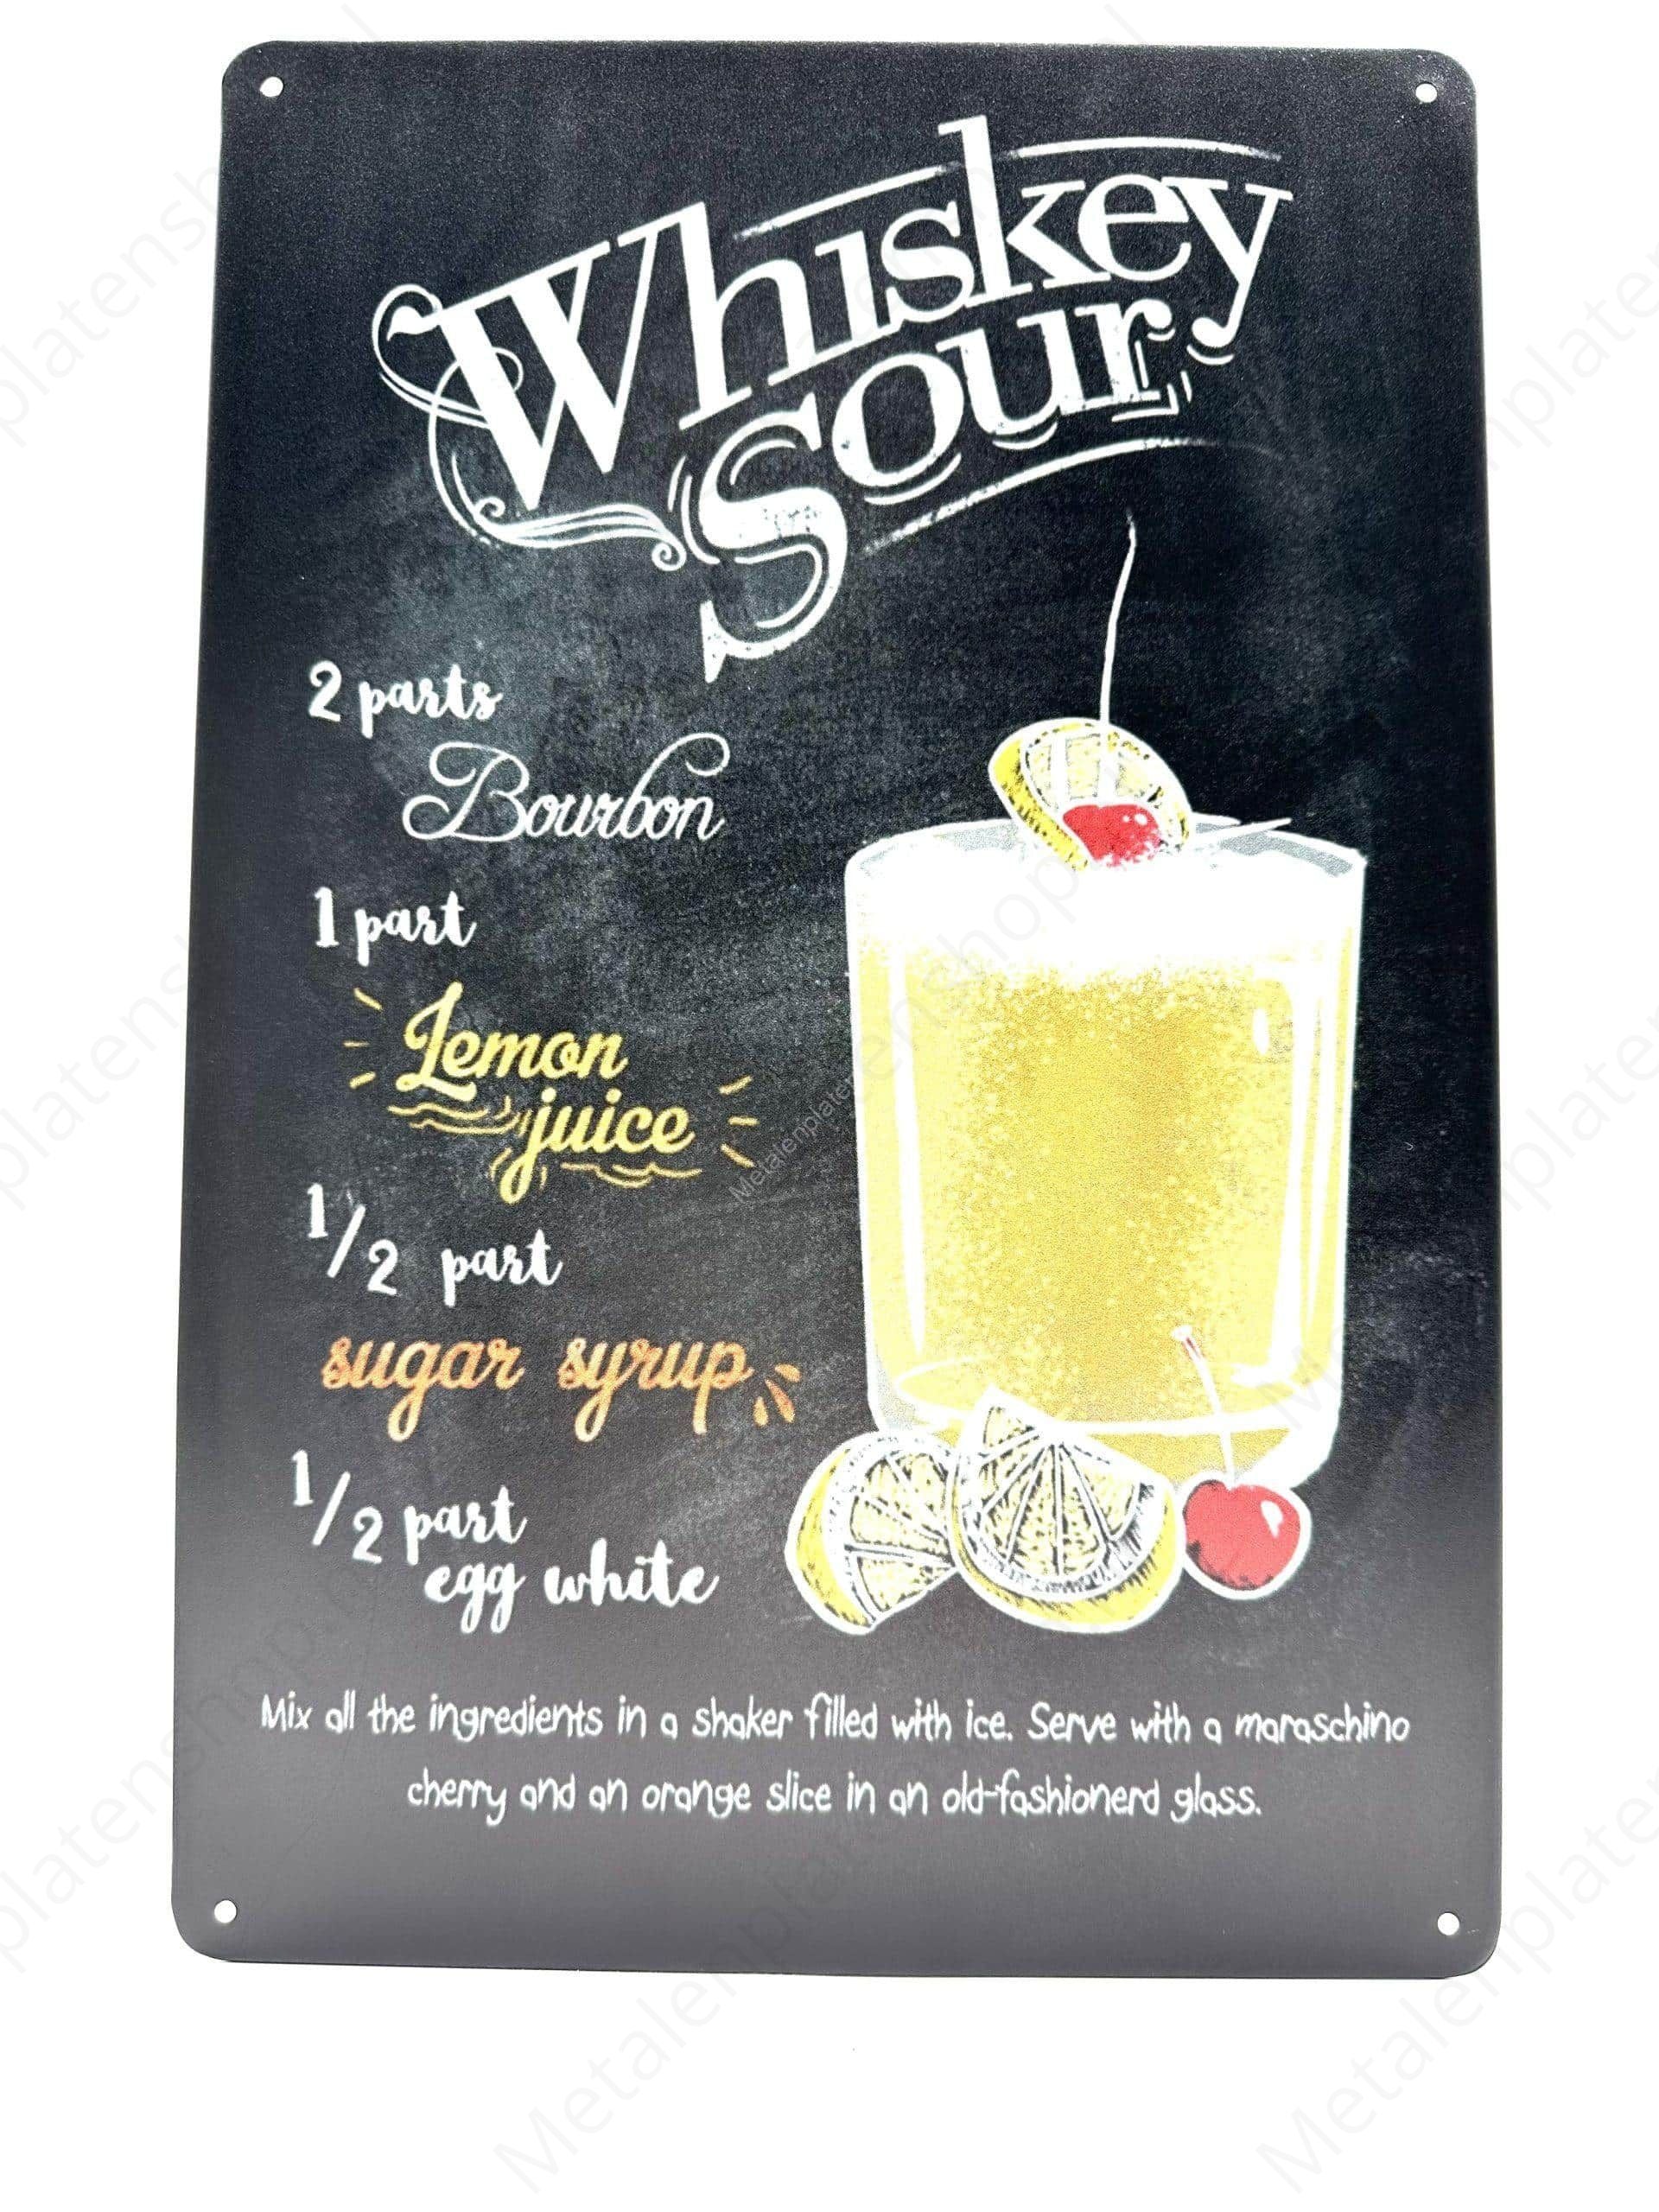 Whiskey
Sour
2 parts
Bourbon
1 part
Lemon
juice
1/2 part
sugar syrup
1/2 part
egg white
Mix all the ingredients in a shaker filled with ice. Serve with a maraschino
cherry and an orange slice in an old-fashionerd glass.
Metalenplatenshop.nl